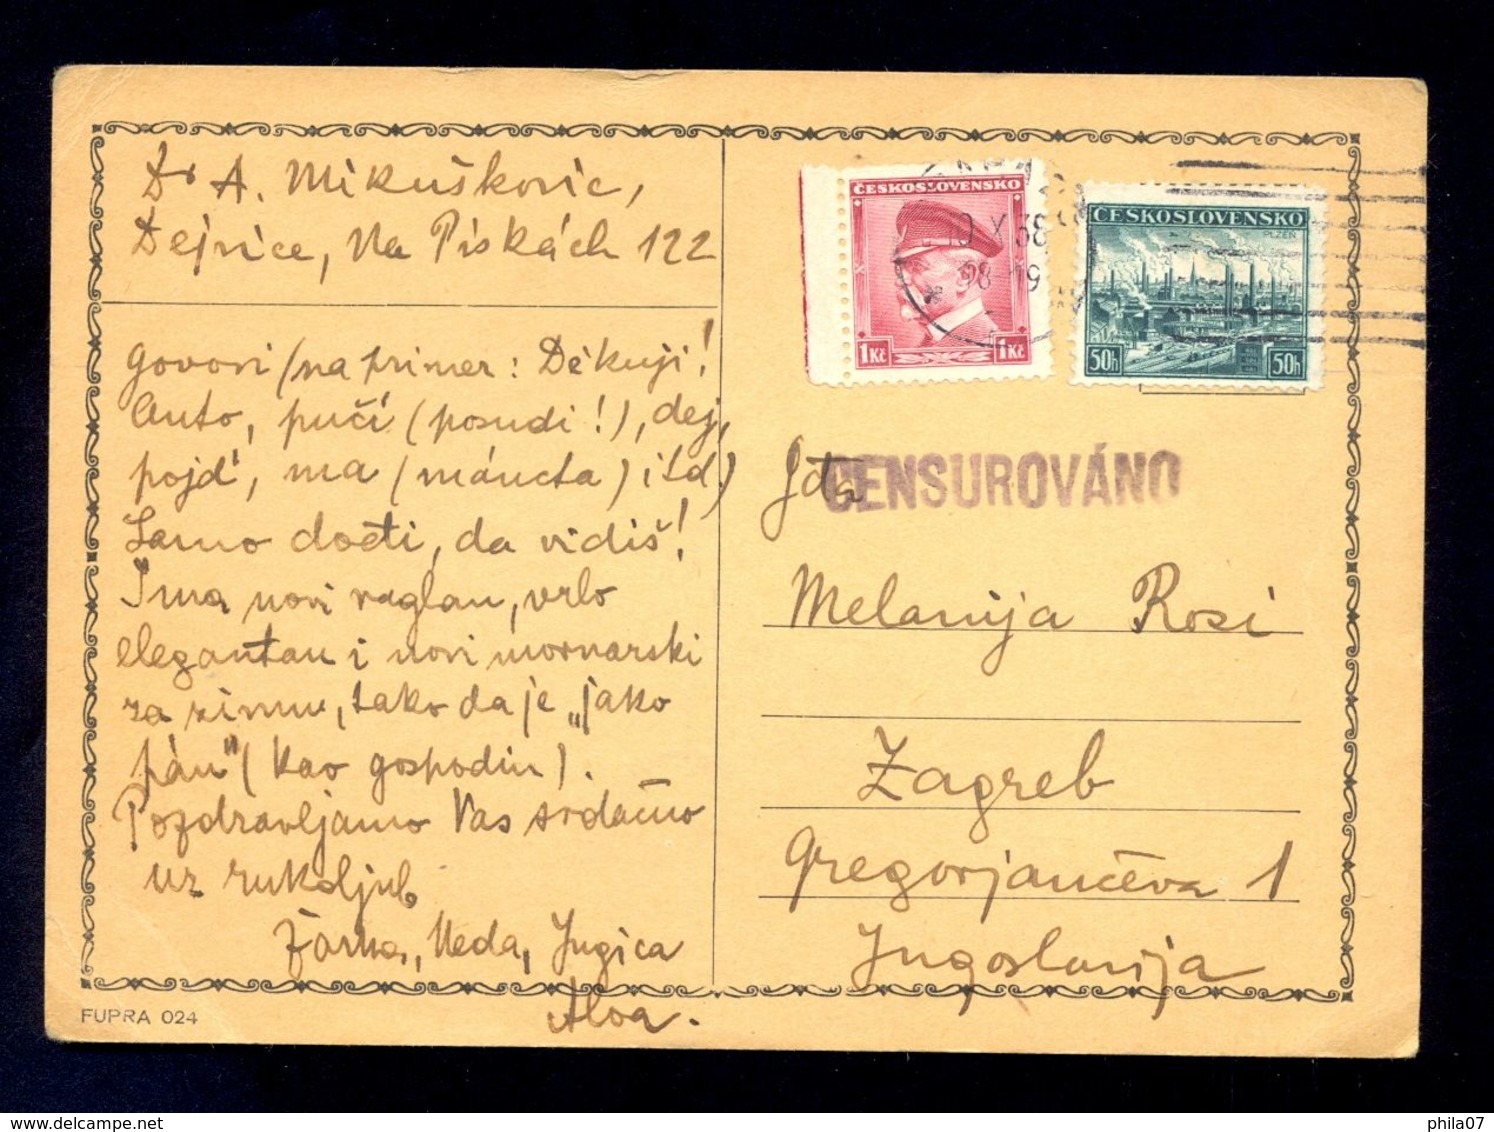 Dr A. Mikuškovic,
Dejvice, Na Pískách 122
govori (na primer: Děkuji!
Auto, pučí (posudi!), dej,
pojď, ma (máucta) itd.)
Samo dođi, da vidiš!
Ima novi raglan, vrlo
elegantan i novi mornarski
za zimu, tako da je „jako
pán" (kao gospodin).
Pozdravljamo Vas srdačno
uz rukoljub
Žarko, Neda, Jugica
FUPRA 024
ČESKOSLOVENSKO
1 Kč 1 Kč
ČESKOSLOVENSKO
PLZEŇ
50h 50h
X 38
CENSUROVÁNO
Gđa
Melanija Rosi
Zagreb
Gregorjančeva 1
Jugoslavija
phila07